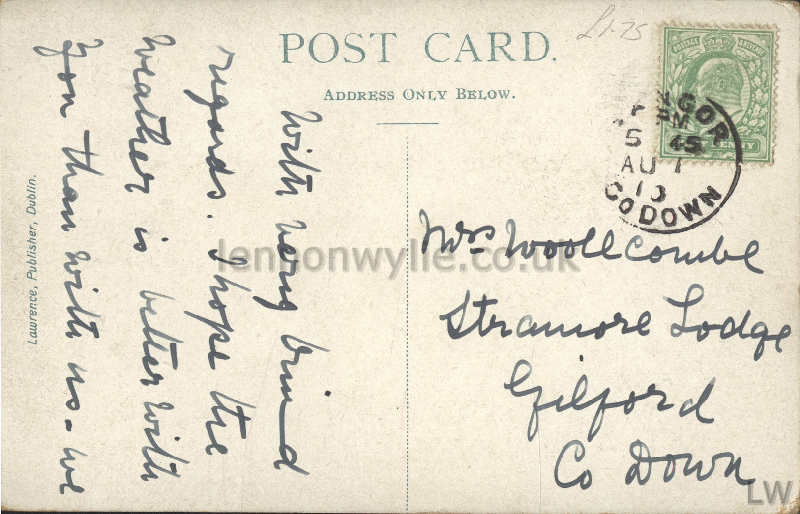 £1.75
POST CARD.
ADDRESS ONLY BELOW.
POSTAGE
NGOR
PM
5 45
AU 1
10
CO DOWN
With very kind
regards. I hope the
weather is better with
you than with us - we
Mrs Woollcombe
Stramore Lodge
Gilford
Co Down
Lawrence, Publisher, Dublin.
lennonwylie.co.uk
LW